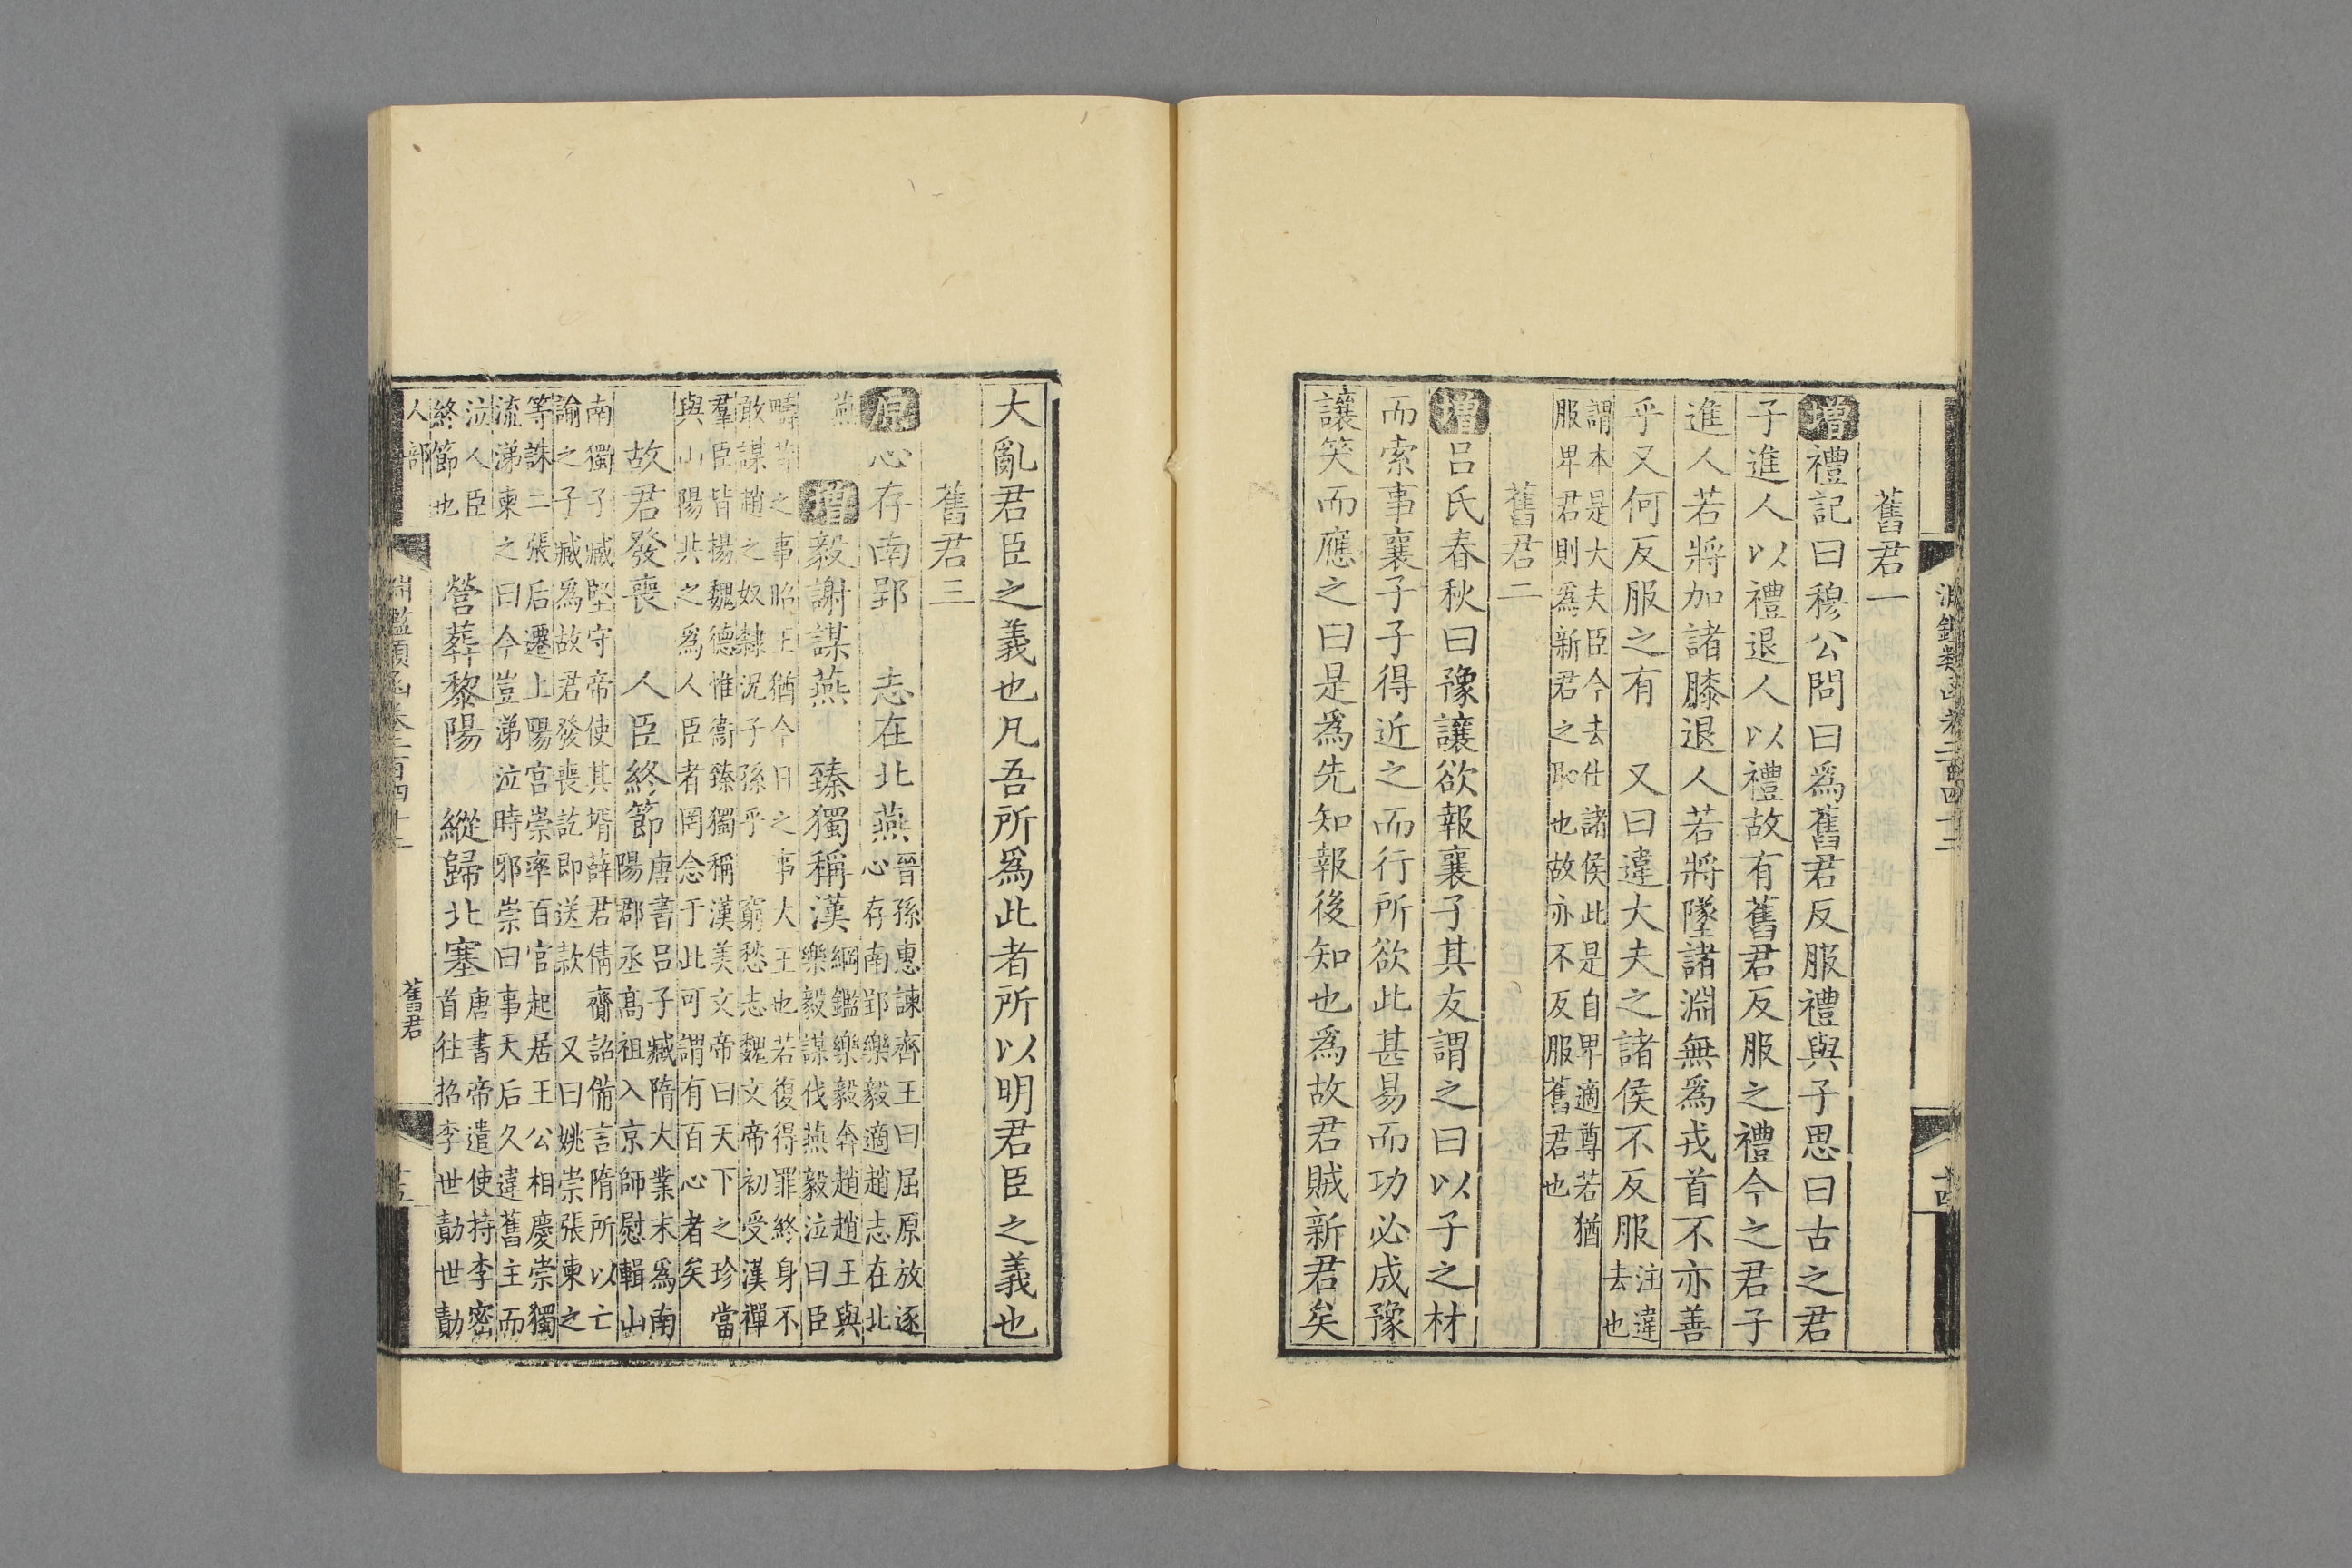 淵鑑類函卷二百四十二 十四
舊君一
增禮記曰穆公問曰爲舊君反服禮與子思曰古之君
子進人以禮退人以禮故有舊君反服之禮今之君子
進人若將加諸膝退人若將墜諸淵無爲戎首不亦善
乎又何反服之有 又曰違大夫之諸侯不反服注違去也
謂本是大夫臣今去仕諸侯此是自卑適尊若猶
服卑君則爲新君之恥也故亦不反服舊君也
舊君二
增呂氏春秋曰豫讓欲報襄子其友謂之曰以子之材
而索事襄子子得近之而行所欲此甚易而功必成豫
讓笑而應之曰是爲先知報後知也爲故君賊新君矣
大亂君臣之義也凡吾所爲此者所以明君臣之義也
舊君三
原心存南郢 志在北燕晉孫惠諫齊王曰屈原放逐心存南郢樂毅適趙志在北
燕 增毅謝謀燕 臻獨稱漢綱鑑樂毅奔趙趙王與樂毅謀伐燕毅泣曰臣
疇昔之事昭王猶今日之事大王也若復得罪終身不
敢謀趙之奴隸況子孫乎 窮愁志魏文帝初受漢禪
羣臣皆揚魏德惟衞臻獨稱漢美文帝曰天下之珍當
與山陽共之爲人臣者罔念于此可謂有百心者矣
故君發喪 人臣終節唐書呂子臧隋大業末爲南陽郡丞高祖入京師慰輯山
南獨子臧堅守帝使其壻薛君倩齎詔備言隋所以亡
諭之子臧爲故君發喪訖即送款 又曰姚崇張柬之
等誅二張后遷上陽宮崇率百官起居王公相慶崇獨
流涕柬之曰今豈涕泣時邪崇曰事天后久違舊主而
泣人臣終節也 營葬黎陽 縱歸北塞唐書帝遣使持李密首往招李世勣世勣
人部 淵鑑類函卷二百四十二 舊君